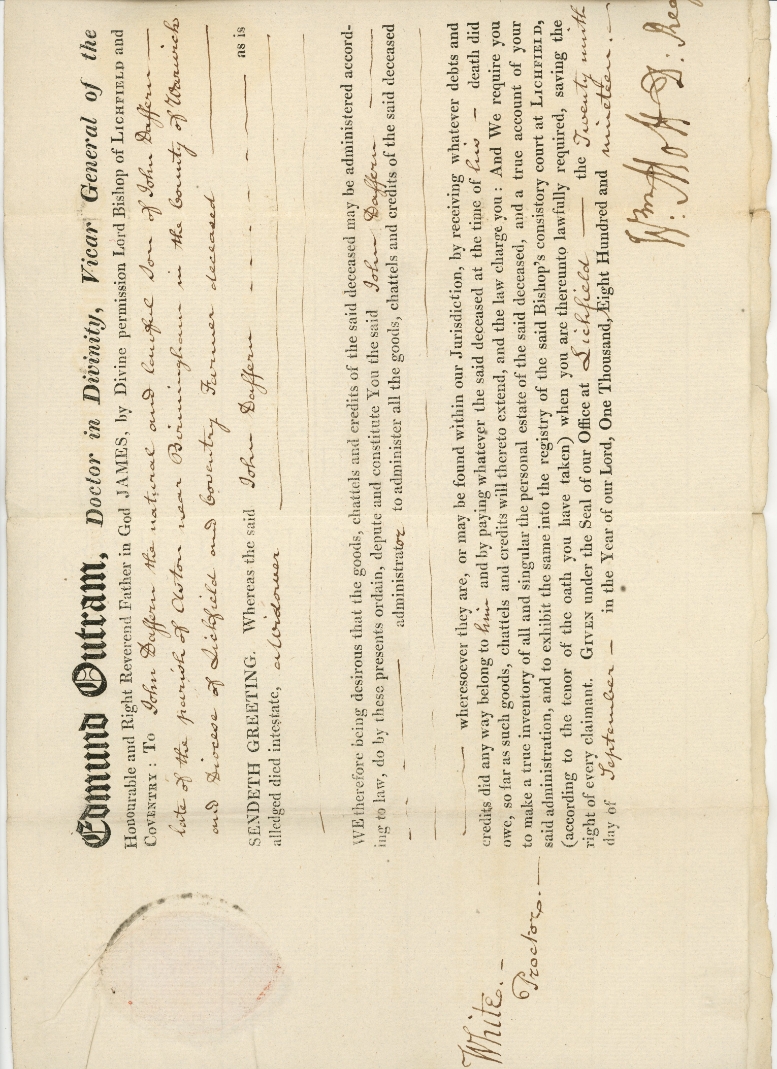 Edmund Outram, Doctor in Divinity, Vicar General of the
Honourable and Right Reverend Father in God JAMES, by Divine permission Lord Bishop of LICHFIELD and
COVENTRY: To John Daffern the natural and lawful Son of John Daffern —
late of the parish of Aston near Birmingham in the County of Warwick
and Diocese of Lichfield and Coventry Farmer deceased
SENDETH GREETING. Whereas the said John Daffern - - - - - as is
alledged died intestate, a Widower
WE therefore being desirous that the goods, chattels and credits of the said deceased may be administered accord-
ing to law, do by these presents ordain, depute and constitute You the said John Daffern —
administrator to administer all the goods, chattels and credits of the said deceased
wheresoever they are, or may be found within our Jurisdiction, by receiving whatever debts and
credits did any way belong to him and by paying whatever the said deceased at the time of his — death did
owe, so far as such goods, chattels and credits will thereto extend, and the law charge you: And We require you
to make a true inventory of all and singular the personal estate of the said deceased, and a true account of your
said administration, and to exhibit the same into the registry of the said Bishop's consistory court at LICHFIELD,
(according to the tenor of the oath you have taken) when you are thereunto lawfully required, saving the
right of every claimant. GIVEN under the Seal of our Office at Lichfield — the Twenty ninth
day of September — in the Year of our Lord, One Thousand, Eight Hundred and nineteen.—
Wm. Mott D: Reg
White.—
Proctor.—